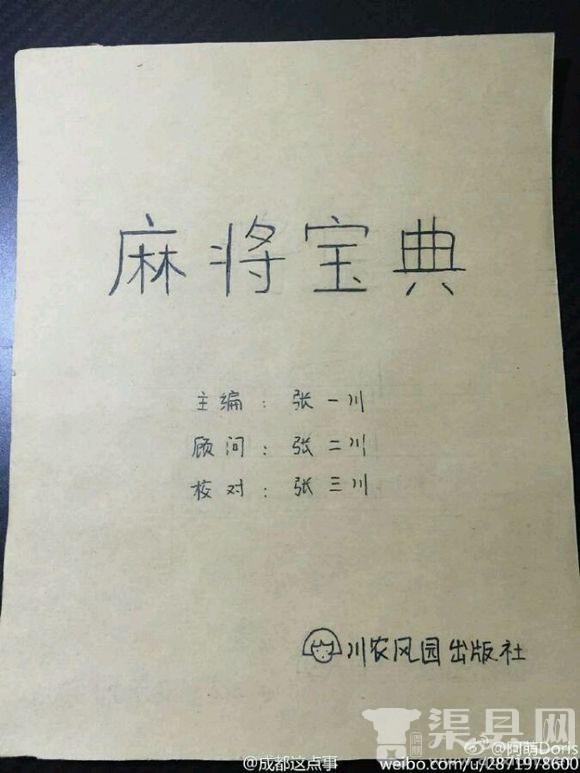 麻将宝典
主编：张一川
顾问：张二川
校对：张三川
川农风园出版社
渠县网
@阿萌Doris
@成都这点事
weibo.com/u/2871978600